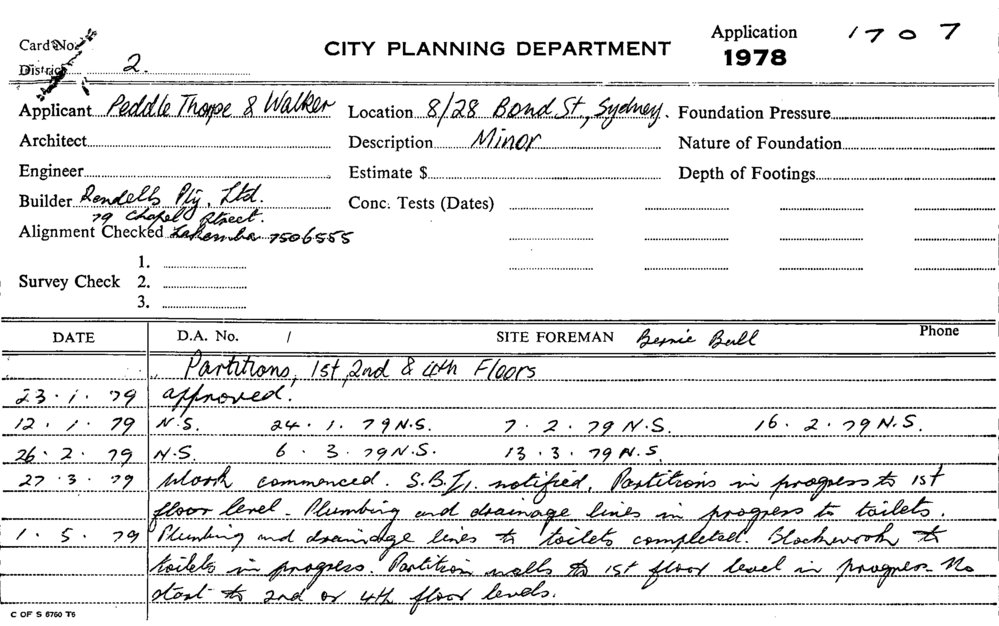 Card No.
CITY PLANNING DEPARTMENT
Application 1707
1978
District 2.
Applicant Peddle Thorpe & Walker Location 8/28 Bond St., Sydney. Foundation Pressure
Architect Description Minor Nature of Foundation
Engineer Estimate $ Depth of Footings
Builder Rendells Pty. Ltd. Conc. Tests (Dates)
79 Chapel Street.
Alignment Checked Lakemba 7506555
1.
Survey Check 2.
3.
DATE D.A. No. / SITE FOREMAN Bernie Bull Phone
Partitions, 1st, 2nd & 4th Floors
23.1.79 approved.
12.1.79 N.S. 24.1.79 N.S. 7.2.79 N.S. 16.2.79 N.S.
26.2.79 N.S. 6.3.79 N.S. 13.3.79 N.S.
27.3.79 Work commenced. S.B.I. notified. Partitions in progress to 1st
floor level. Plumbing and drainage lines in progress to toilets.
1.5.79 Plumbing and drainage lines to toilets completed. Blockwork to
toilets in progress. Partition walls to 1st floor level in progress. No
start to 2nd or 4th floor levels.
C OF S 6760 T6